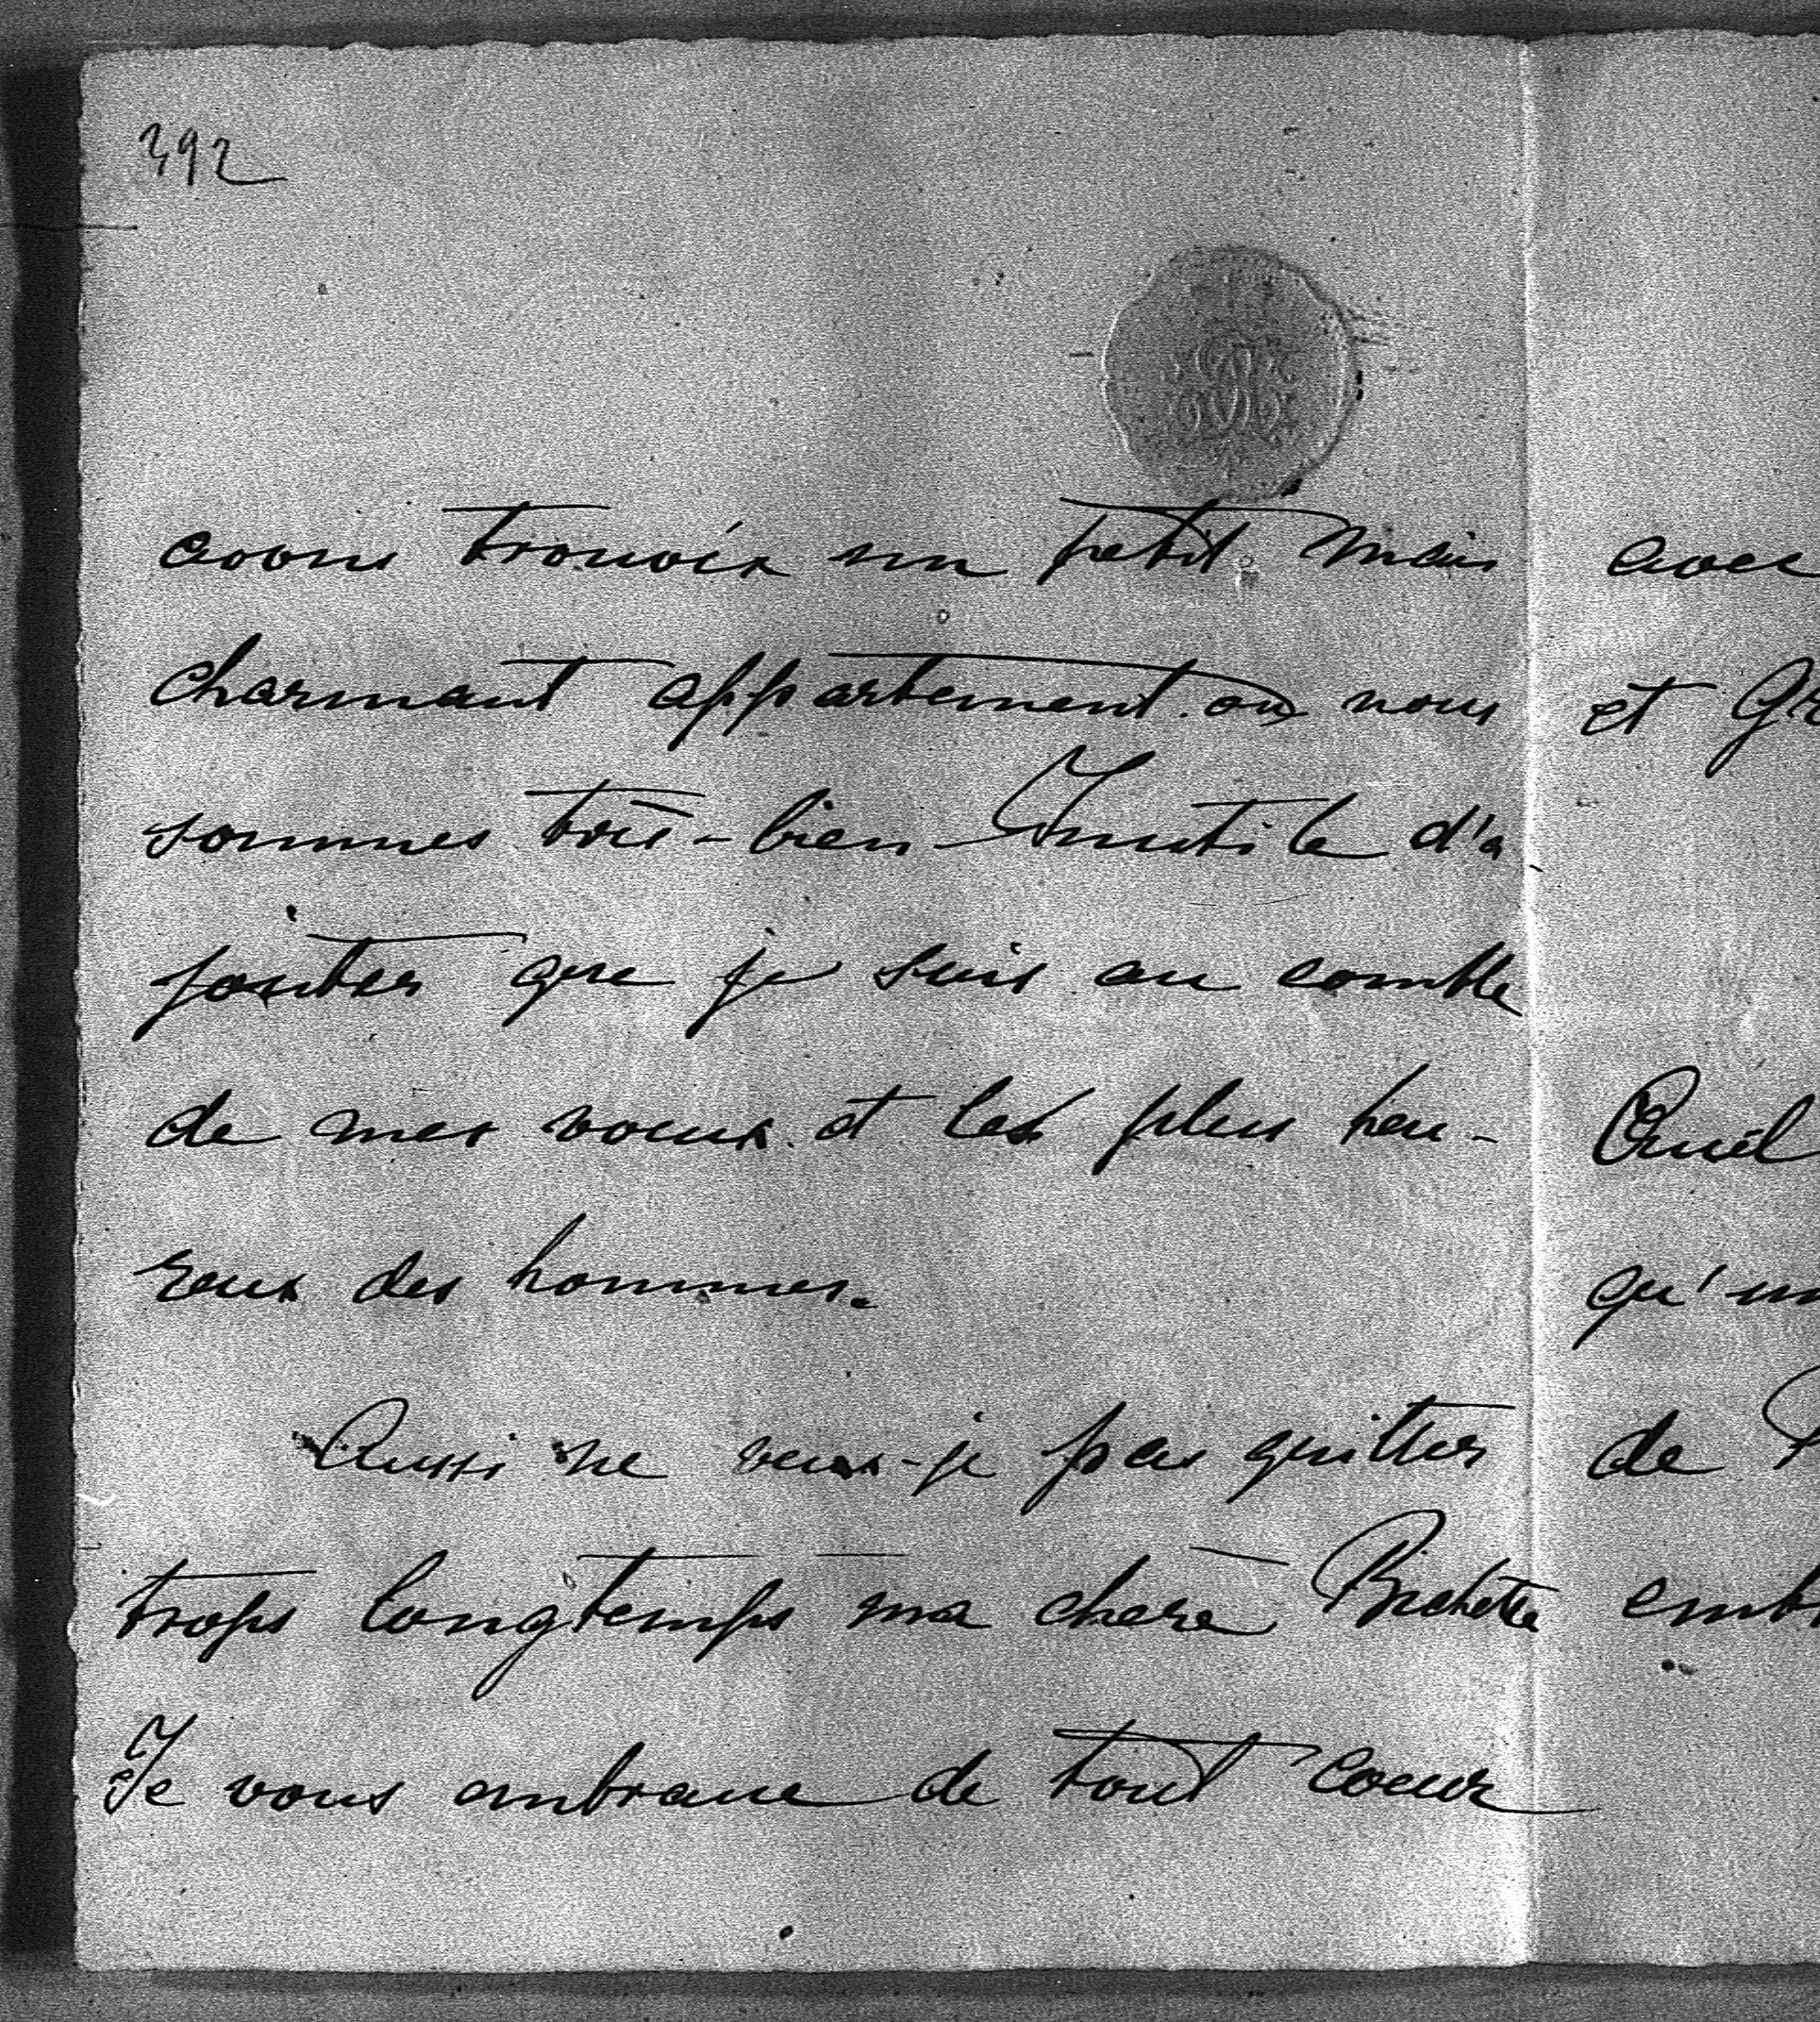 392
avons trouvés un petit mais
charmant appartement où nous
sommes très-bien - Inutile d'a
jouter que je suis au comble
de mes voeux et les plus heu-
reux des hommes.
Aussi ne veux-je pas quitter
trops longtemps ma chère Bichette
Je vous embrasse de tout coeur
avec
et
qu'un
de